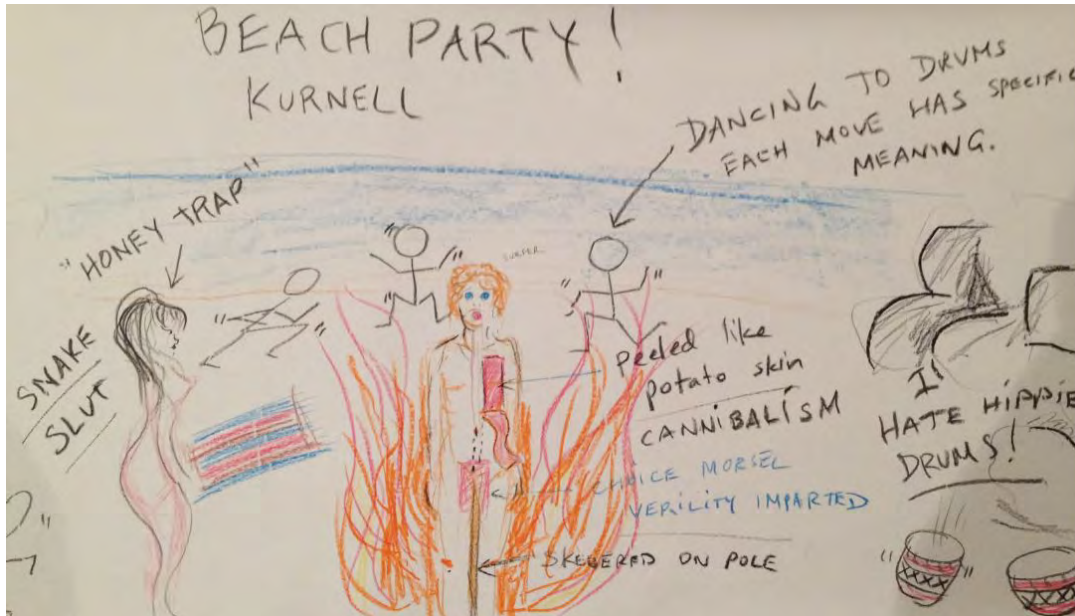 BEACH PARTY!
KURNELL
DANCING TO DRUMS
EACH MOVE HAS SPECIFIC
MEANING.
"HONEY TRAP"
SURFER
SNAKE
SLUT
peeled like
potato skin
CANNIBALISM
CHOICE MORSEL
VERILITY IMPARTED
SKEEERED ON POLE
I
HATE HIPPIE
DRUMS!